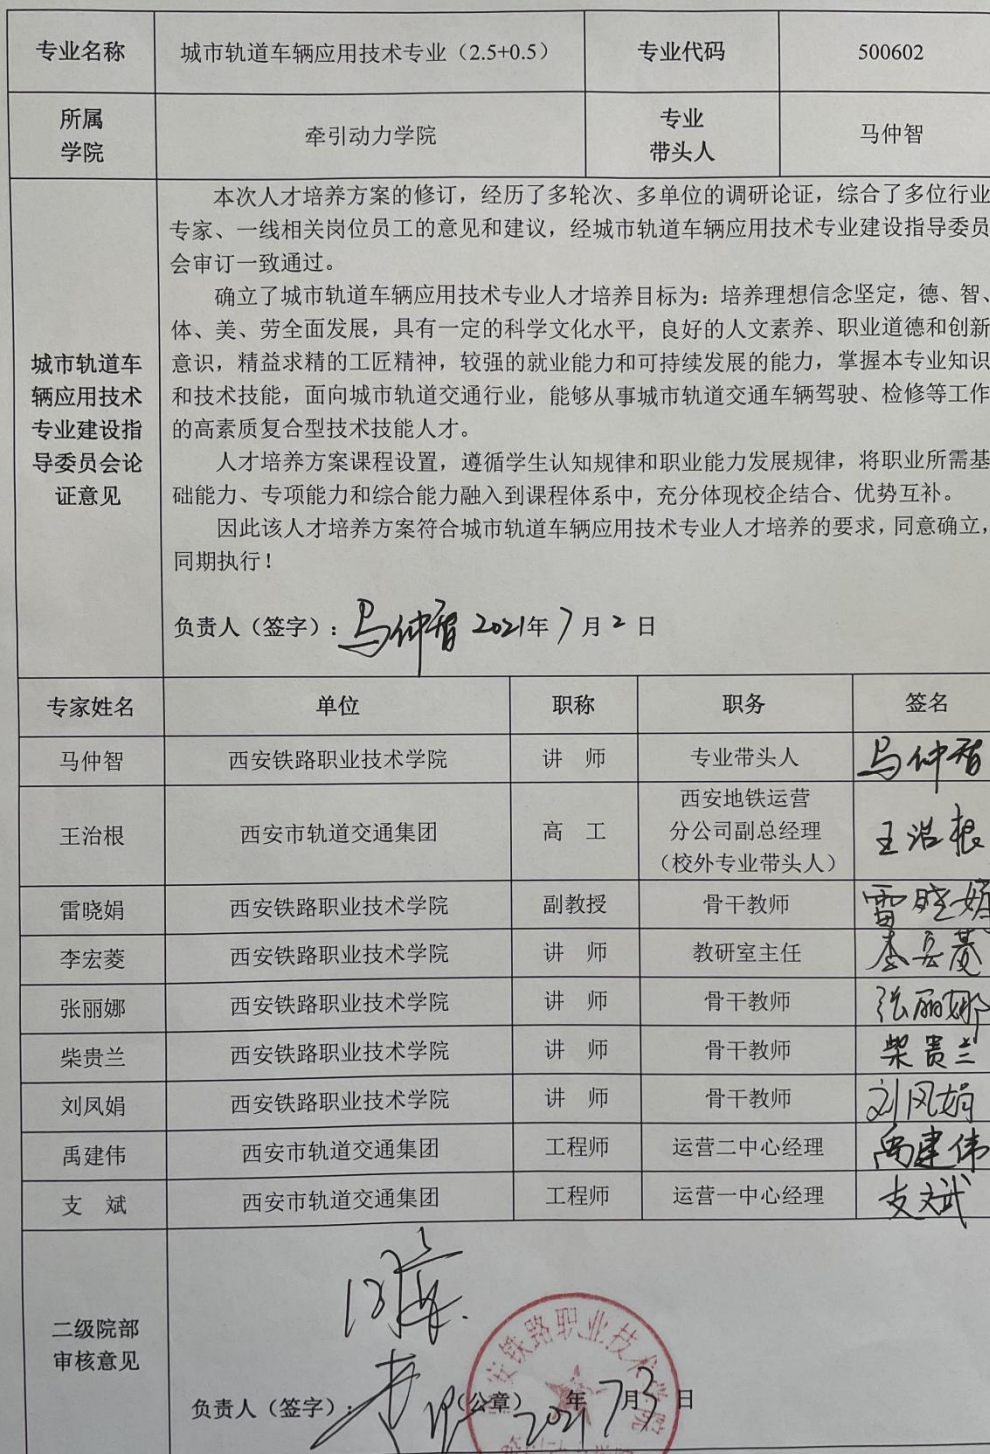 专业名称 城市轨道车辆应用技术专业（2.5+0.5） 专业代码 500602
所属
学院 牵引动力学院 专业
带头人 马仲智
城市轨道车
辆应用技术
专业建设指
导委员会论
证意见
本次人才培养方案的修订，经历了多轮次、多单位的调研论证，综合了多位行业
专家、一线相关岗位员工的意见和建议，经城市轨道车辆应用技术专业建设指导委员
会审订一致通过。
确立了城市轨道车辆应用技术专业人才培养目标为：培养理想信念坚定，德、智、
体、美、劳全面发展，具有一定的科学文化水平，良好的人文素养、职业道德和创新
意识，精益求精的工匠精神，较强的就业能力和可持续发展的能力，掌握本专业知识
和技术技能，面向城市轨道交通行业，能够从事城市轨道交通车辆驾驶、检修等工作
的高素质复合型技术技能人才。
人才培养方案课程设置，遵循学生认知规律和职业能力发展规律，将职业所需基
础能力、专项能力和综合能力融入到课程体系中，充分体现校企结合、优势互补。
因此该人才培养方案符合城市轨道车辆应用技术专业人才培养的要求，同意确立，
同期执行！
负责人（签字）：马仲智 2021年7月2日
专家姓名 单位 职称 职务 签名
马仲智 西安铁路职业技术学院 讲 师 专业带头人 马仲智
王治根 西安市轨道交通集团 高 工 西安地铁运营
分公司副总经理
（校外专业带头人） 王治根
雷晓娟 西安铁路职业技术学院 副教授 骨干教师 雷晓娟
李宏菱 西安铁路职业技术学院 讲 师 教研室主任 李宏菱
张丽娜 西安铁路职业技术学院 讲 师 骨干教师 张丽娜
柴贵兰 西安铁路职业技术学院 讲 师 骨干教师 柴贵兰
刘凤娟 西安铁路职业技术学院 讲 师 骨干教师 刘凤娟
禹建伟 西安市轨道交通集团 工程师 运营二中心经理 禹建伟
支 斌 西安市轨道交通集团 工程师 运营一中心经理 支斌
二级院部
审核意见
同意.
西安铁路职业技术学院
负责人（签字）： （公章） 2021年7月3日